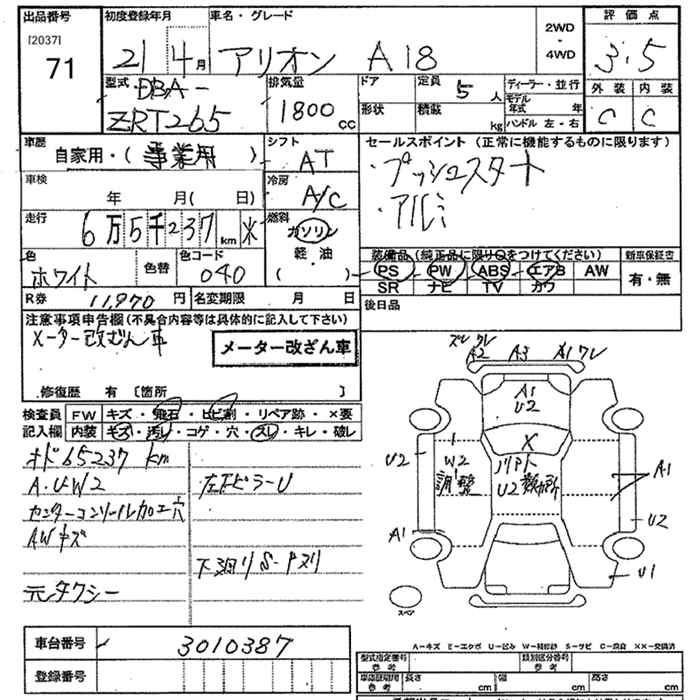 出品番号
[2037]
71
初度登録年月
21 4月
車名・グレード
アリオン A18
2WD
・
4WD
評価点
3.5
外装 内装
C C
型式
DBA-
ZRT265
排気量
1800cc
ドア
形状
定員 5人
積載 kg
ディーラー・並行
モデル年式 年
ハンドル 左・右
車歴
自家用・(事業用)
シフト
AT
セールスポイント (正常に機能するものに限ります)
・プッシュスタート
・アルミ
車検
年 月( 日)
冷房
A/C
走行
6万5千237km
燃料
ガソリン
軽油
( )
色
ホワイト
色替
色コード
040
装備品(純正品に限り○をつけてください)
PS PW ABS エアB AW
SR ナビ TV カワ
新車保証書
有・無
R券 11,970円
名変期限 月 日
後日品
注意事項申告欄(不具合内容等は具体的に記入して下さい)
メーター改ざん車
メーター改ざん車
修復歴 有 〔箇所 〕
検査員記入欄
FW キズ・飛石・ヒビ割・リペア跡・×要
内装 キズ・汚れ・コゲ・穴・スレ・キレ・破レ
オド65237km
A.U.W2
センターコンソール加工穴
AWキズ
元タクシー
左右ピラーU
下廻りS・Pヌリ
A2 A3 A1ワレ
A1
U2
X
U2
W2
調整
U2数ヶ所
A1
U2
A1
U1
スペア
車台番号 3010387
登録番号
A-キズ E-エクボ U-凹み W-補修跡 S-サビ C-腐食 XX-交換済
型式指定番号 参考
類別区分番号 参考
車庫証明用 参考
長さ cm
幅 cm
高さ cm